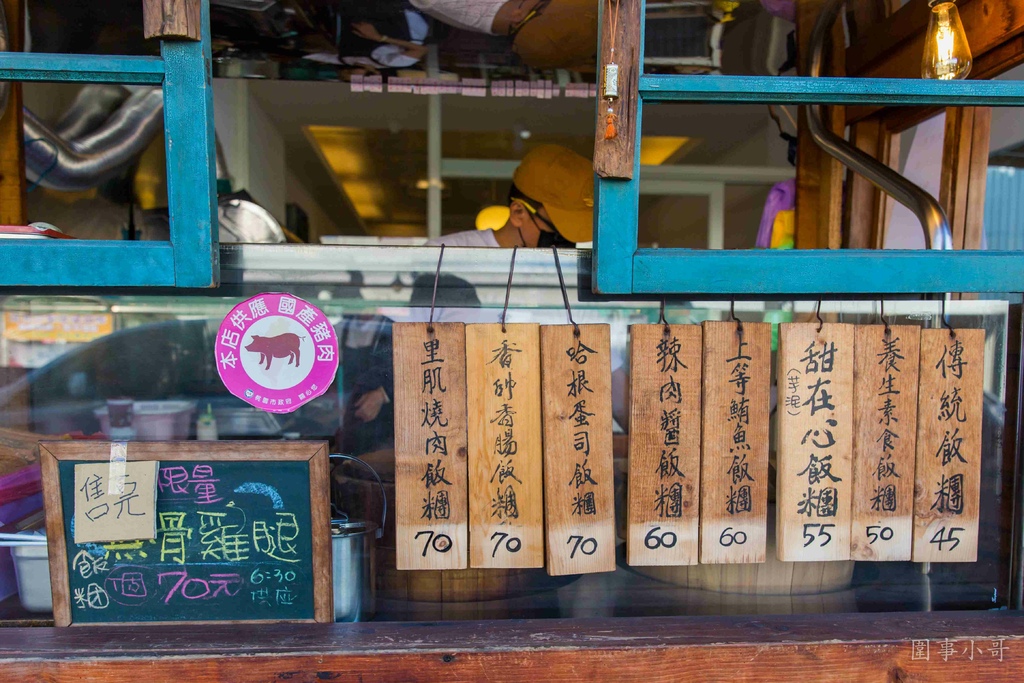 本店供應 國產豬肉
桃園市政府 關心您
傳統飯糰
45
養生素食飯糰
50
甜在心飯糰
(芋泥)
55
上等鮪魚飯糰
60
辣肉醬飯糰
60
哈根蛋司飯糰
70
香帥香腸飯糰
70
里肌燒肉飯糰
70
售完
限量
無骨雞腿
飯糰
1個 70元
6:30
供應
圍事小哥